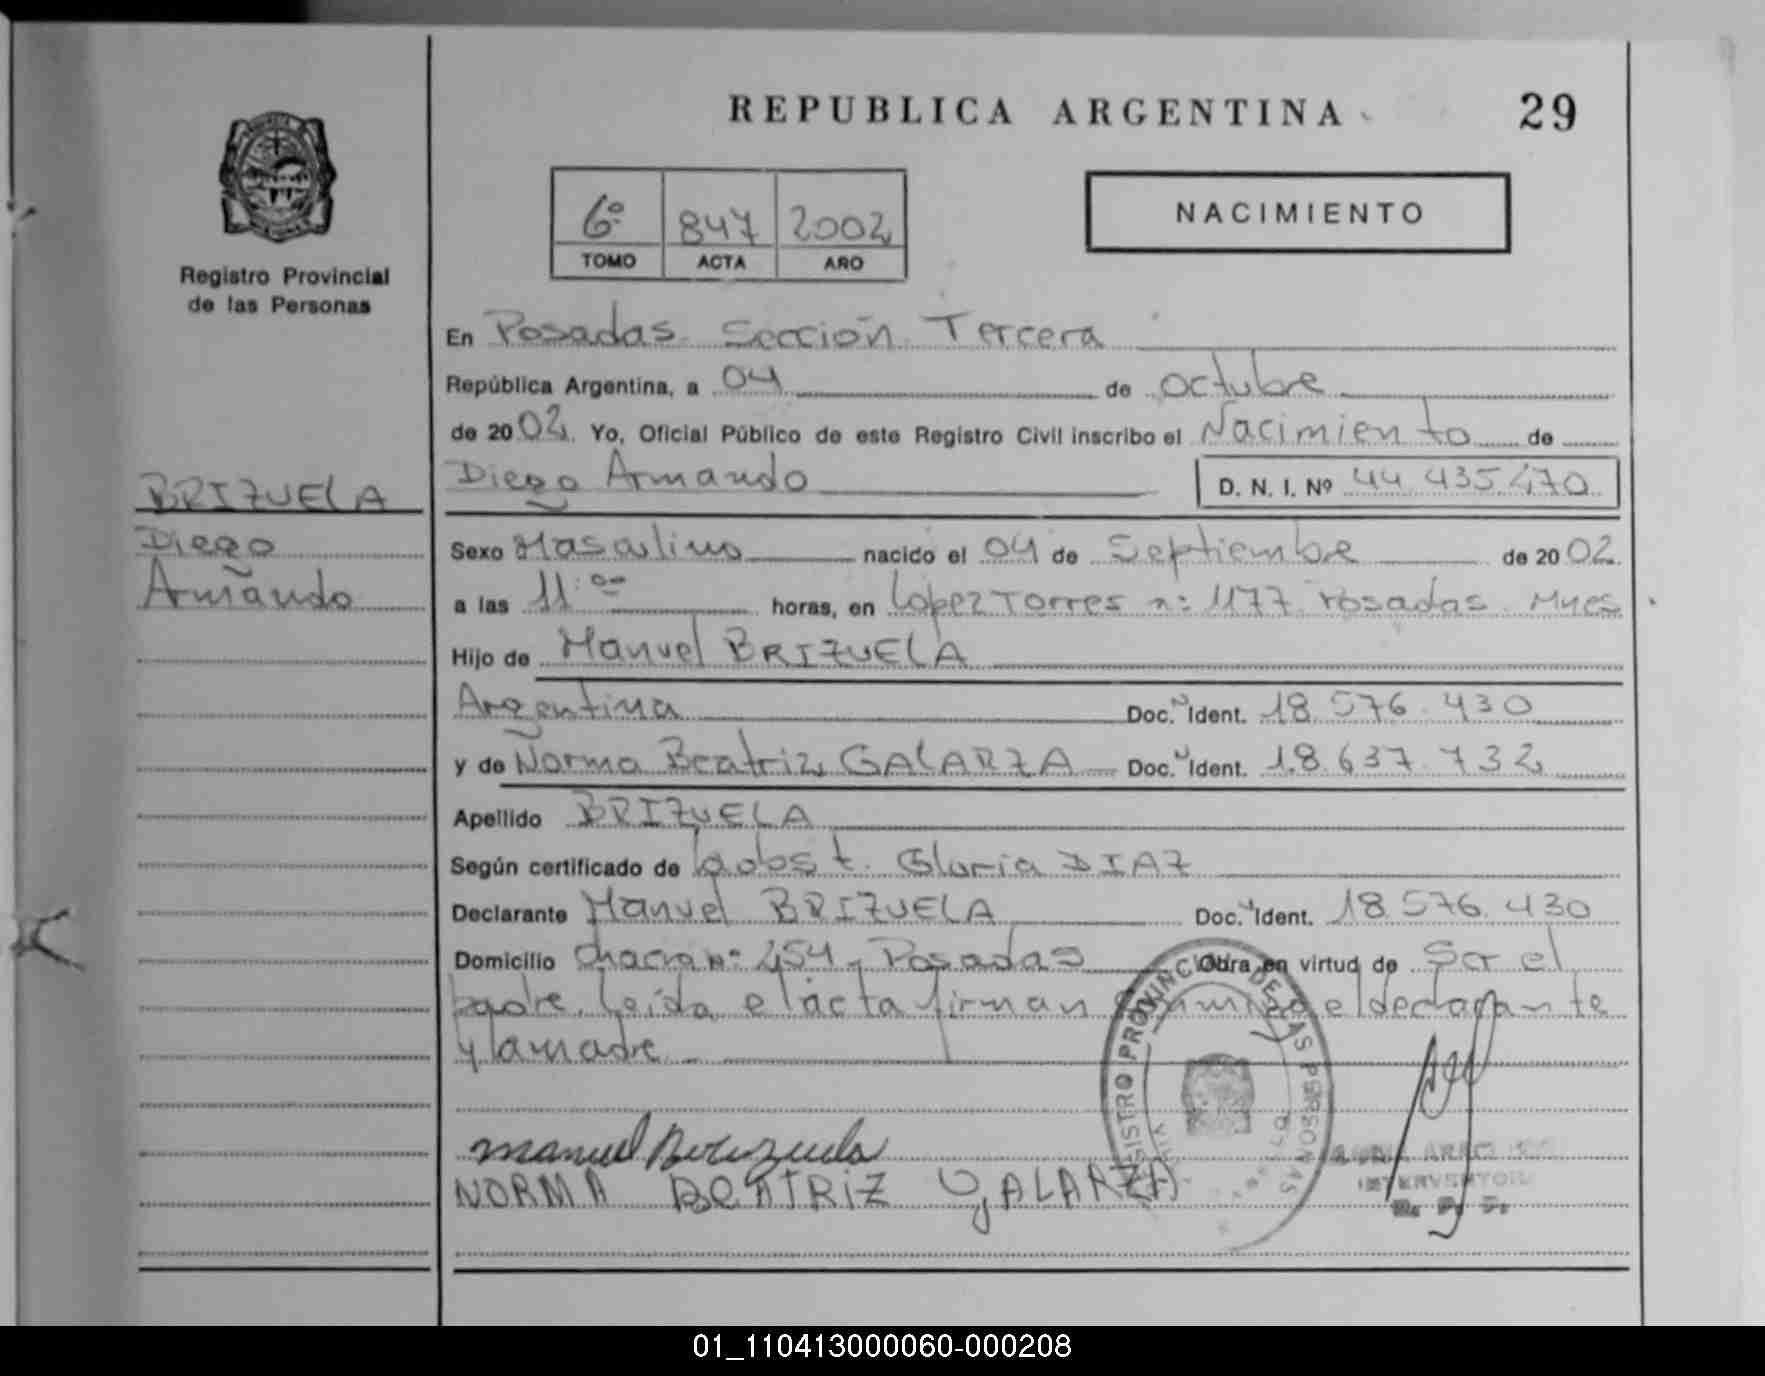 REPUBLICA ARGENTINA
29
Registro Provincial
de las Personas
6º 847 2002
TOMO ACTA AÑO
NACIMIENTO
En Posadas Sección Tercera
República Argentina, a 04 de octubre
de 2002. Yo, Oficial Público de este Registro Civil inscribo el Nacimiento de
Diego Armando D. N. I. Nº 44 435 470
BRIZUELA
Diego
Armando
Sexo Masculino nacido el 04 de Septiembre de 2002
a las 11:00 horas, en Lopez Torres n: 1177 Posadas Mnes
Hijo de Manuel BRIZUELA
Argentina Doc. Ident. 18.576.430
y de Norma Beatriz GALARZA Doc. Ident. 18.637.732
Apellido BRIZUELA
Según certificado de la obst. Gloria DIAZ
Declarante Manuel BRIZUELA Doc. Ident. 18.576.430
Domicilio chacra n: 254 - Posadas Obra en virtud de Ser el
padre. Leída el acta firman conmigo el declarante
y la madre
manuel Berizuela
NORMA BEATRIZ GALARZA
REGISTRO PROVINCIAL DE LAS PERSONAS
INTERVENTOR
01_110413000060-000208